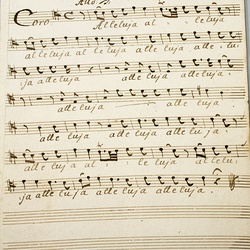 Coro
Alleluja al leluja
alleluja al leluja alle lu
ja alleluja alleluja alleluja
alleluja alleluja
alleluja alleluja alle lu ja.
alle luja al le luja allelu
ja alle luja alle luja alleluja.